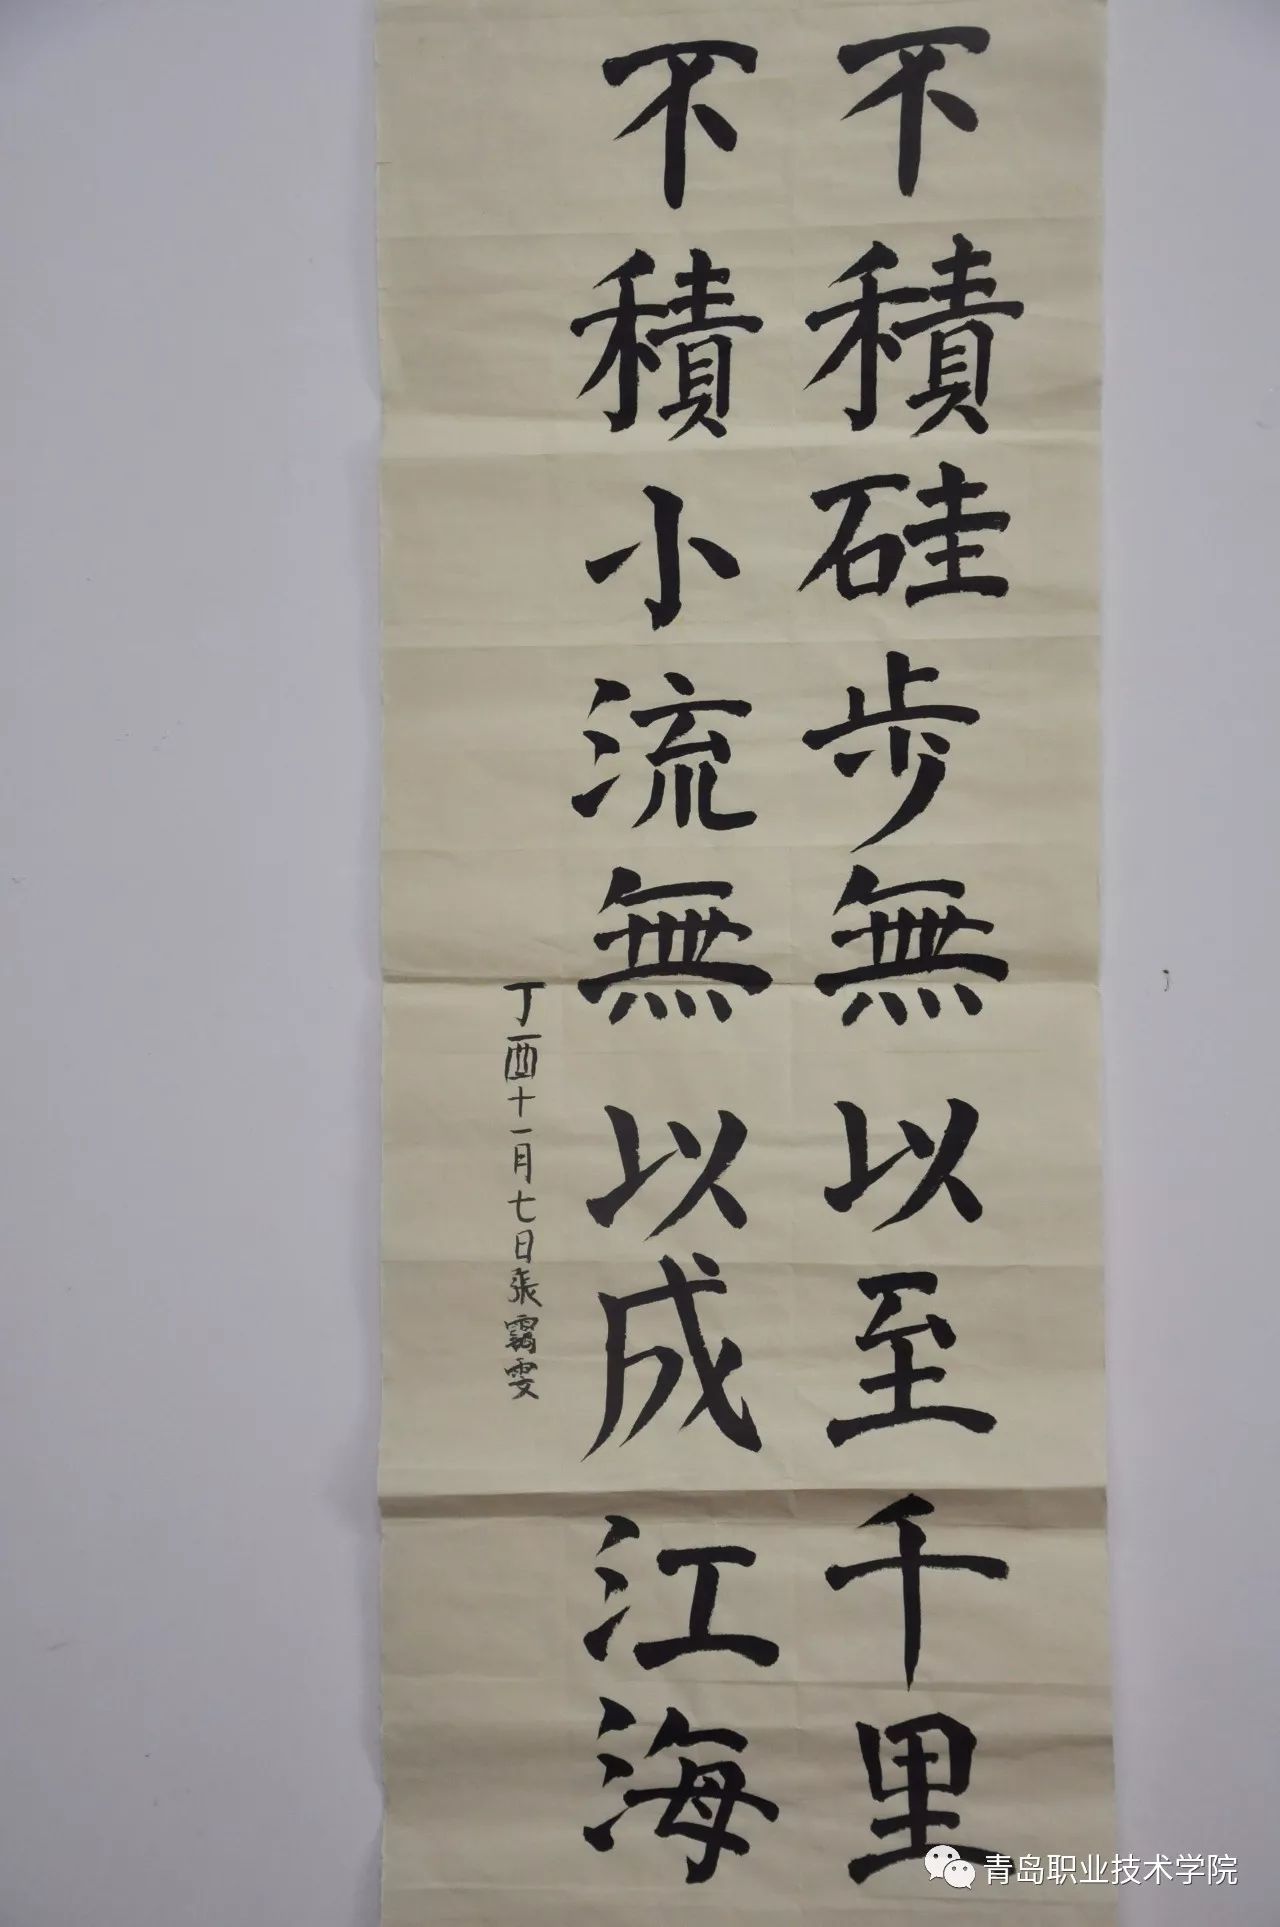 不積硅步無以至千里
不積小流無以成江海
丁酉十一月七日張靄雯
青岛职业技术学院